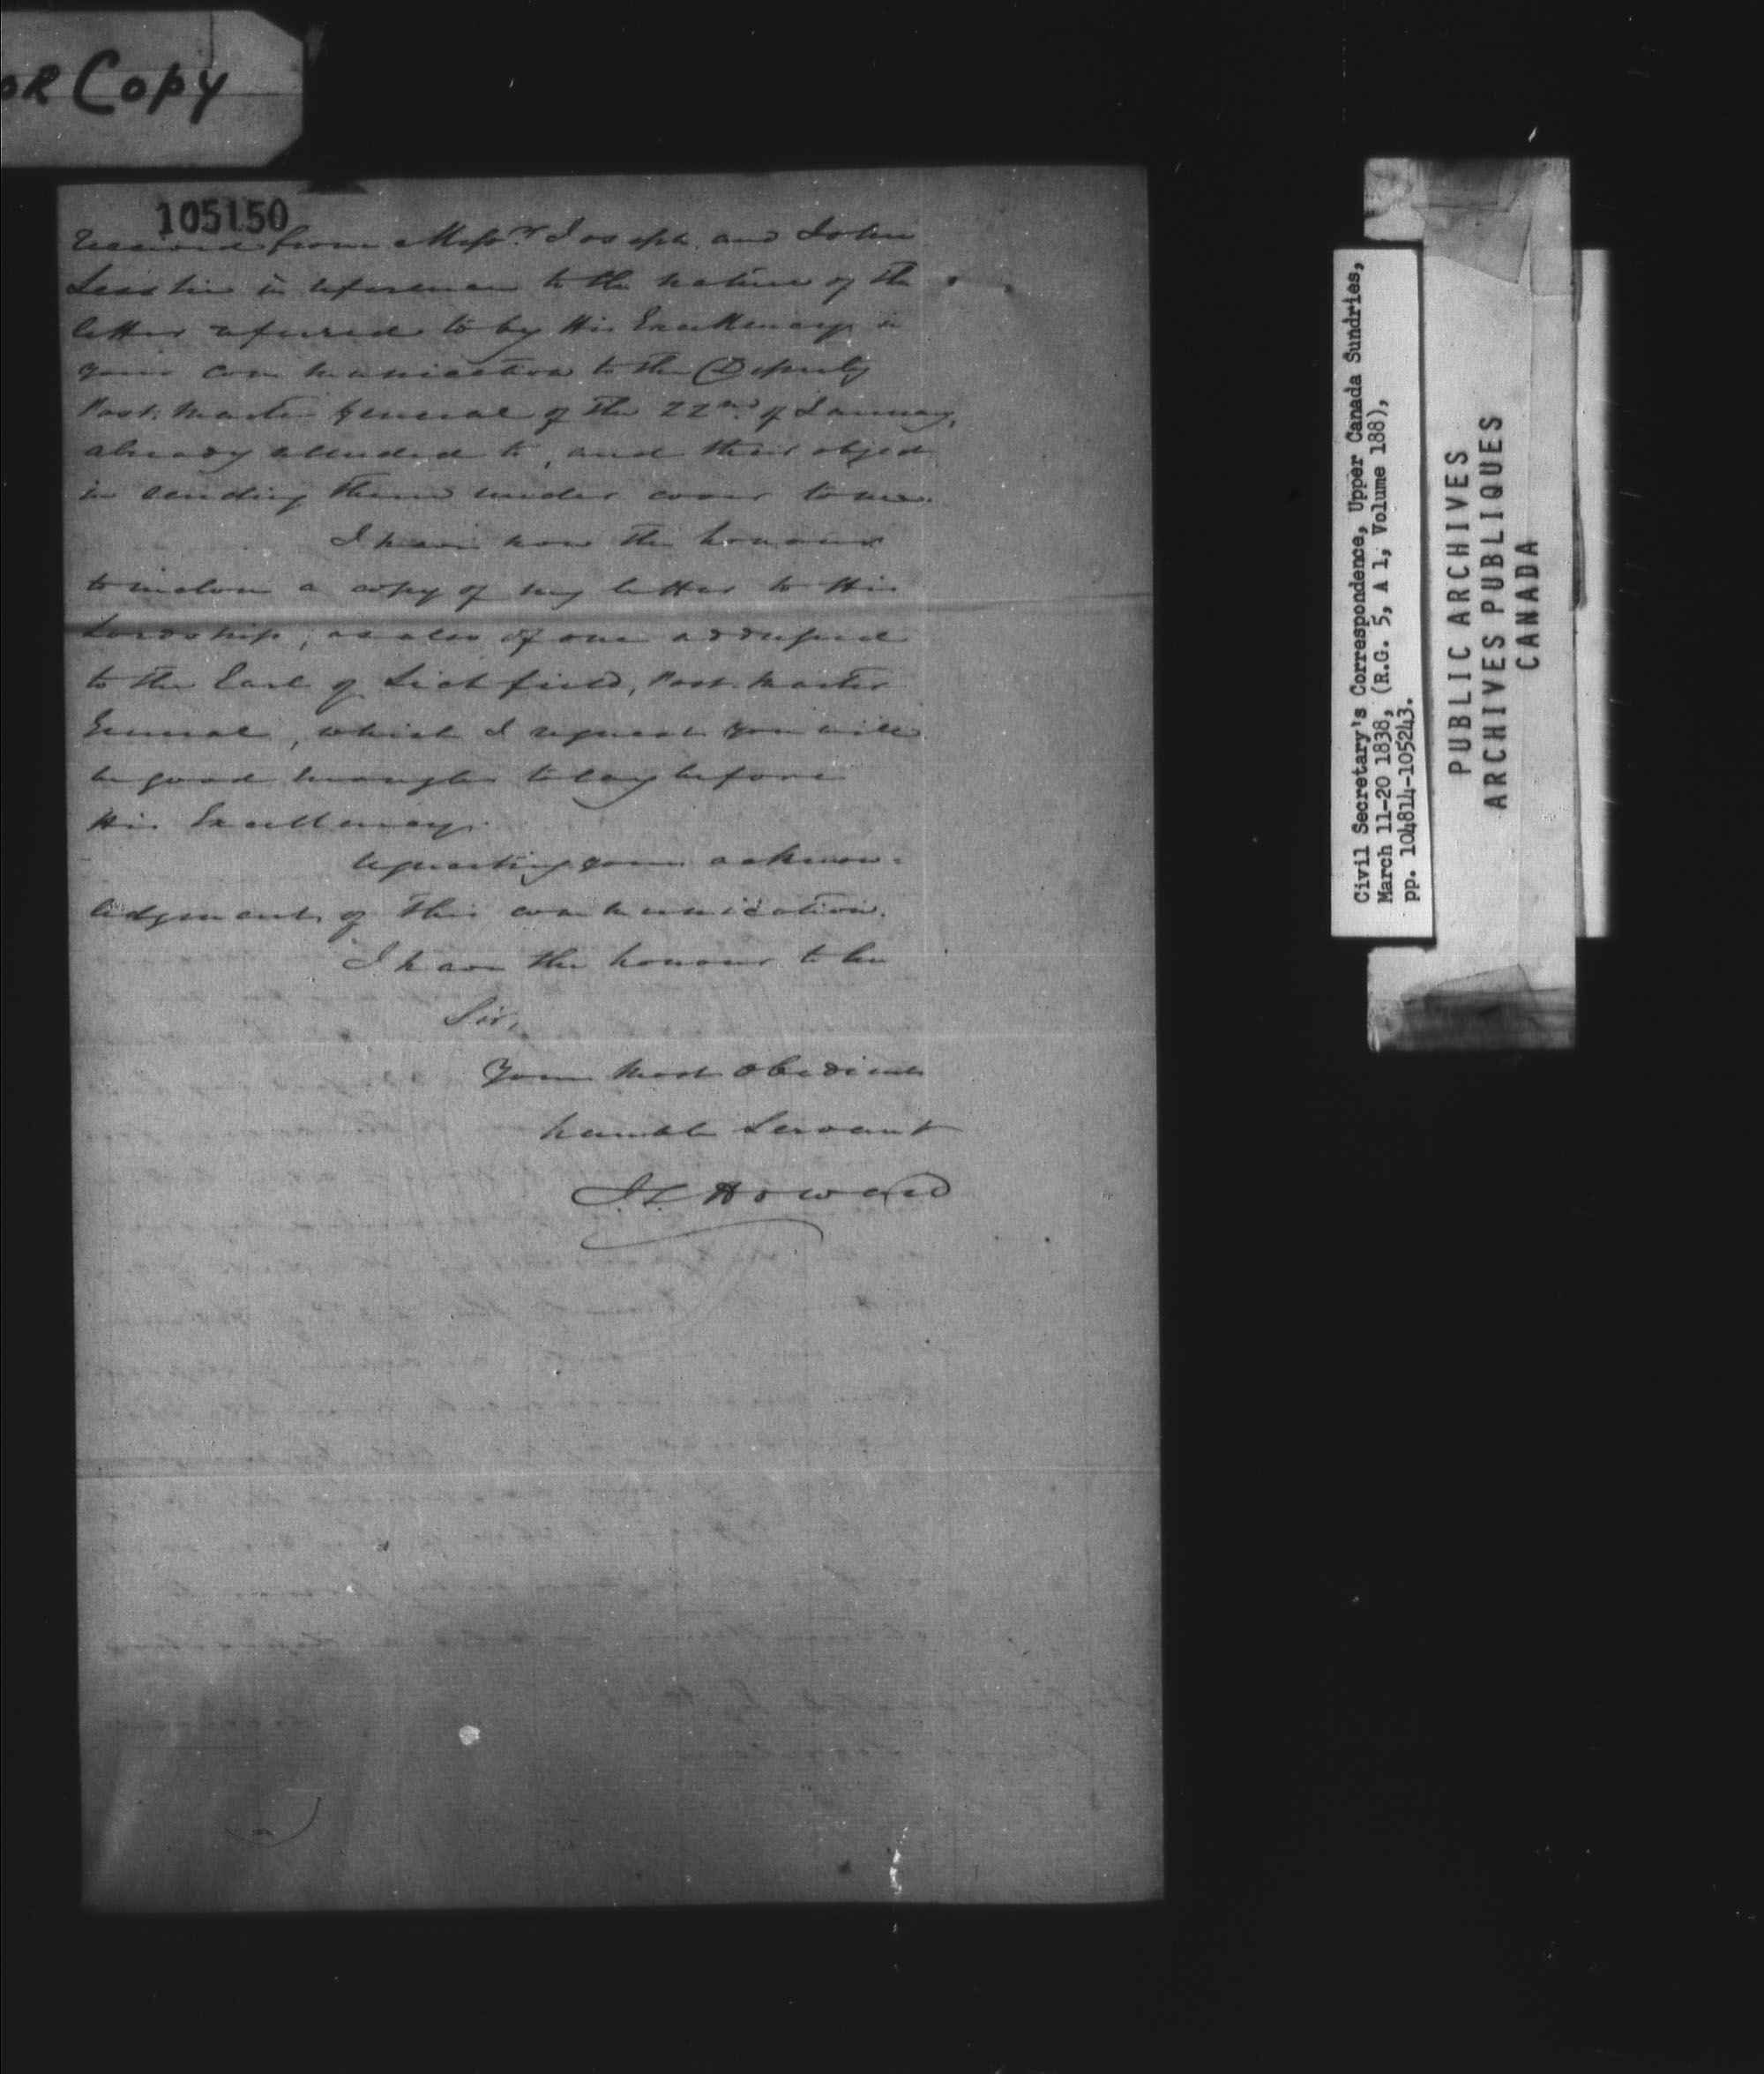 OR Copy
105150
received from Messrs Joseph and John
Lesslie in reference to the nature of the
letter referred to by His Excellency in
your communication to the Deputy
Post Master General of the 22nd of January,
already alluded to, and their object
in sending them under cover to me.
I have now the honour
to inclose a copy of my letter to His
Lordship, as also of one addressed
to the Earl of Lichfield, Post Master
General, which I request you will
be good enough to lay before
His Excellency.
Requesting your acknow-
ledgment of this communication.
I have the honour to be
Sir,
Your most obedient
humble Servant
J.S. Howard
Civil Secretary's Correspondence, Upper Canada Sundries,
March 11-20 1838, (R.G. 5, A 1, Volume 188),
pp. 104814-105243.
PUBLIC ARCHIVES
ARCHIVES PUBLIQUES
CANADA